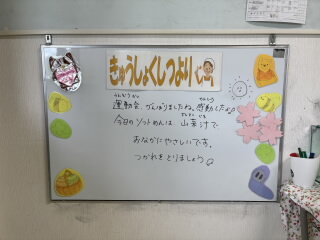 きゅうしょくしつより
うんどうかい
運動会、がんばりましたね。感動したよ
今日のソフトめんは 山菜汁で
おなかにやさしいです。
つかれをとりましょう